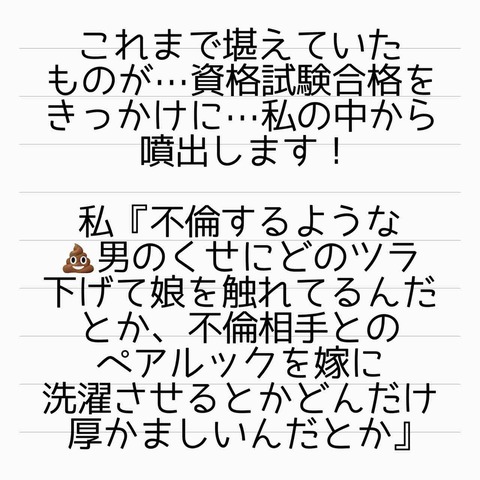 これまで堪えていた
ものが…資格試験合格を
きっかけに…私の中から
噴出します！
私『不倫するような
💩男のくせにどのツラ
下げて娘を触れてるんだ
とか、不倫相手との
ペアルックを嫁に
洗濯させるとかどんだけ
厚かましいんだとか』